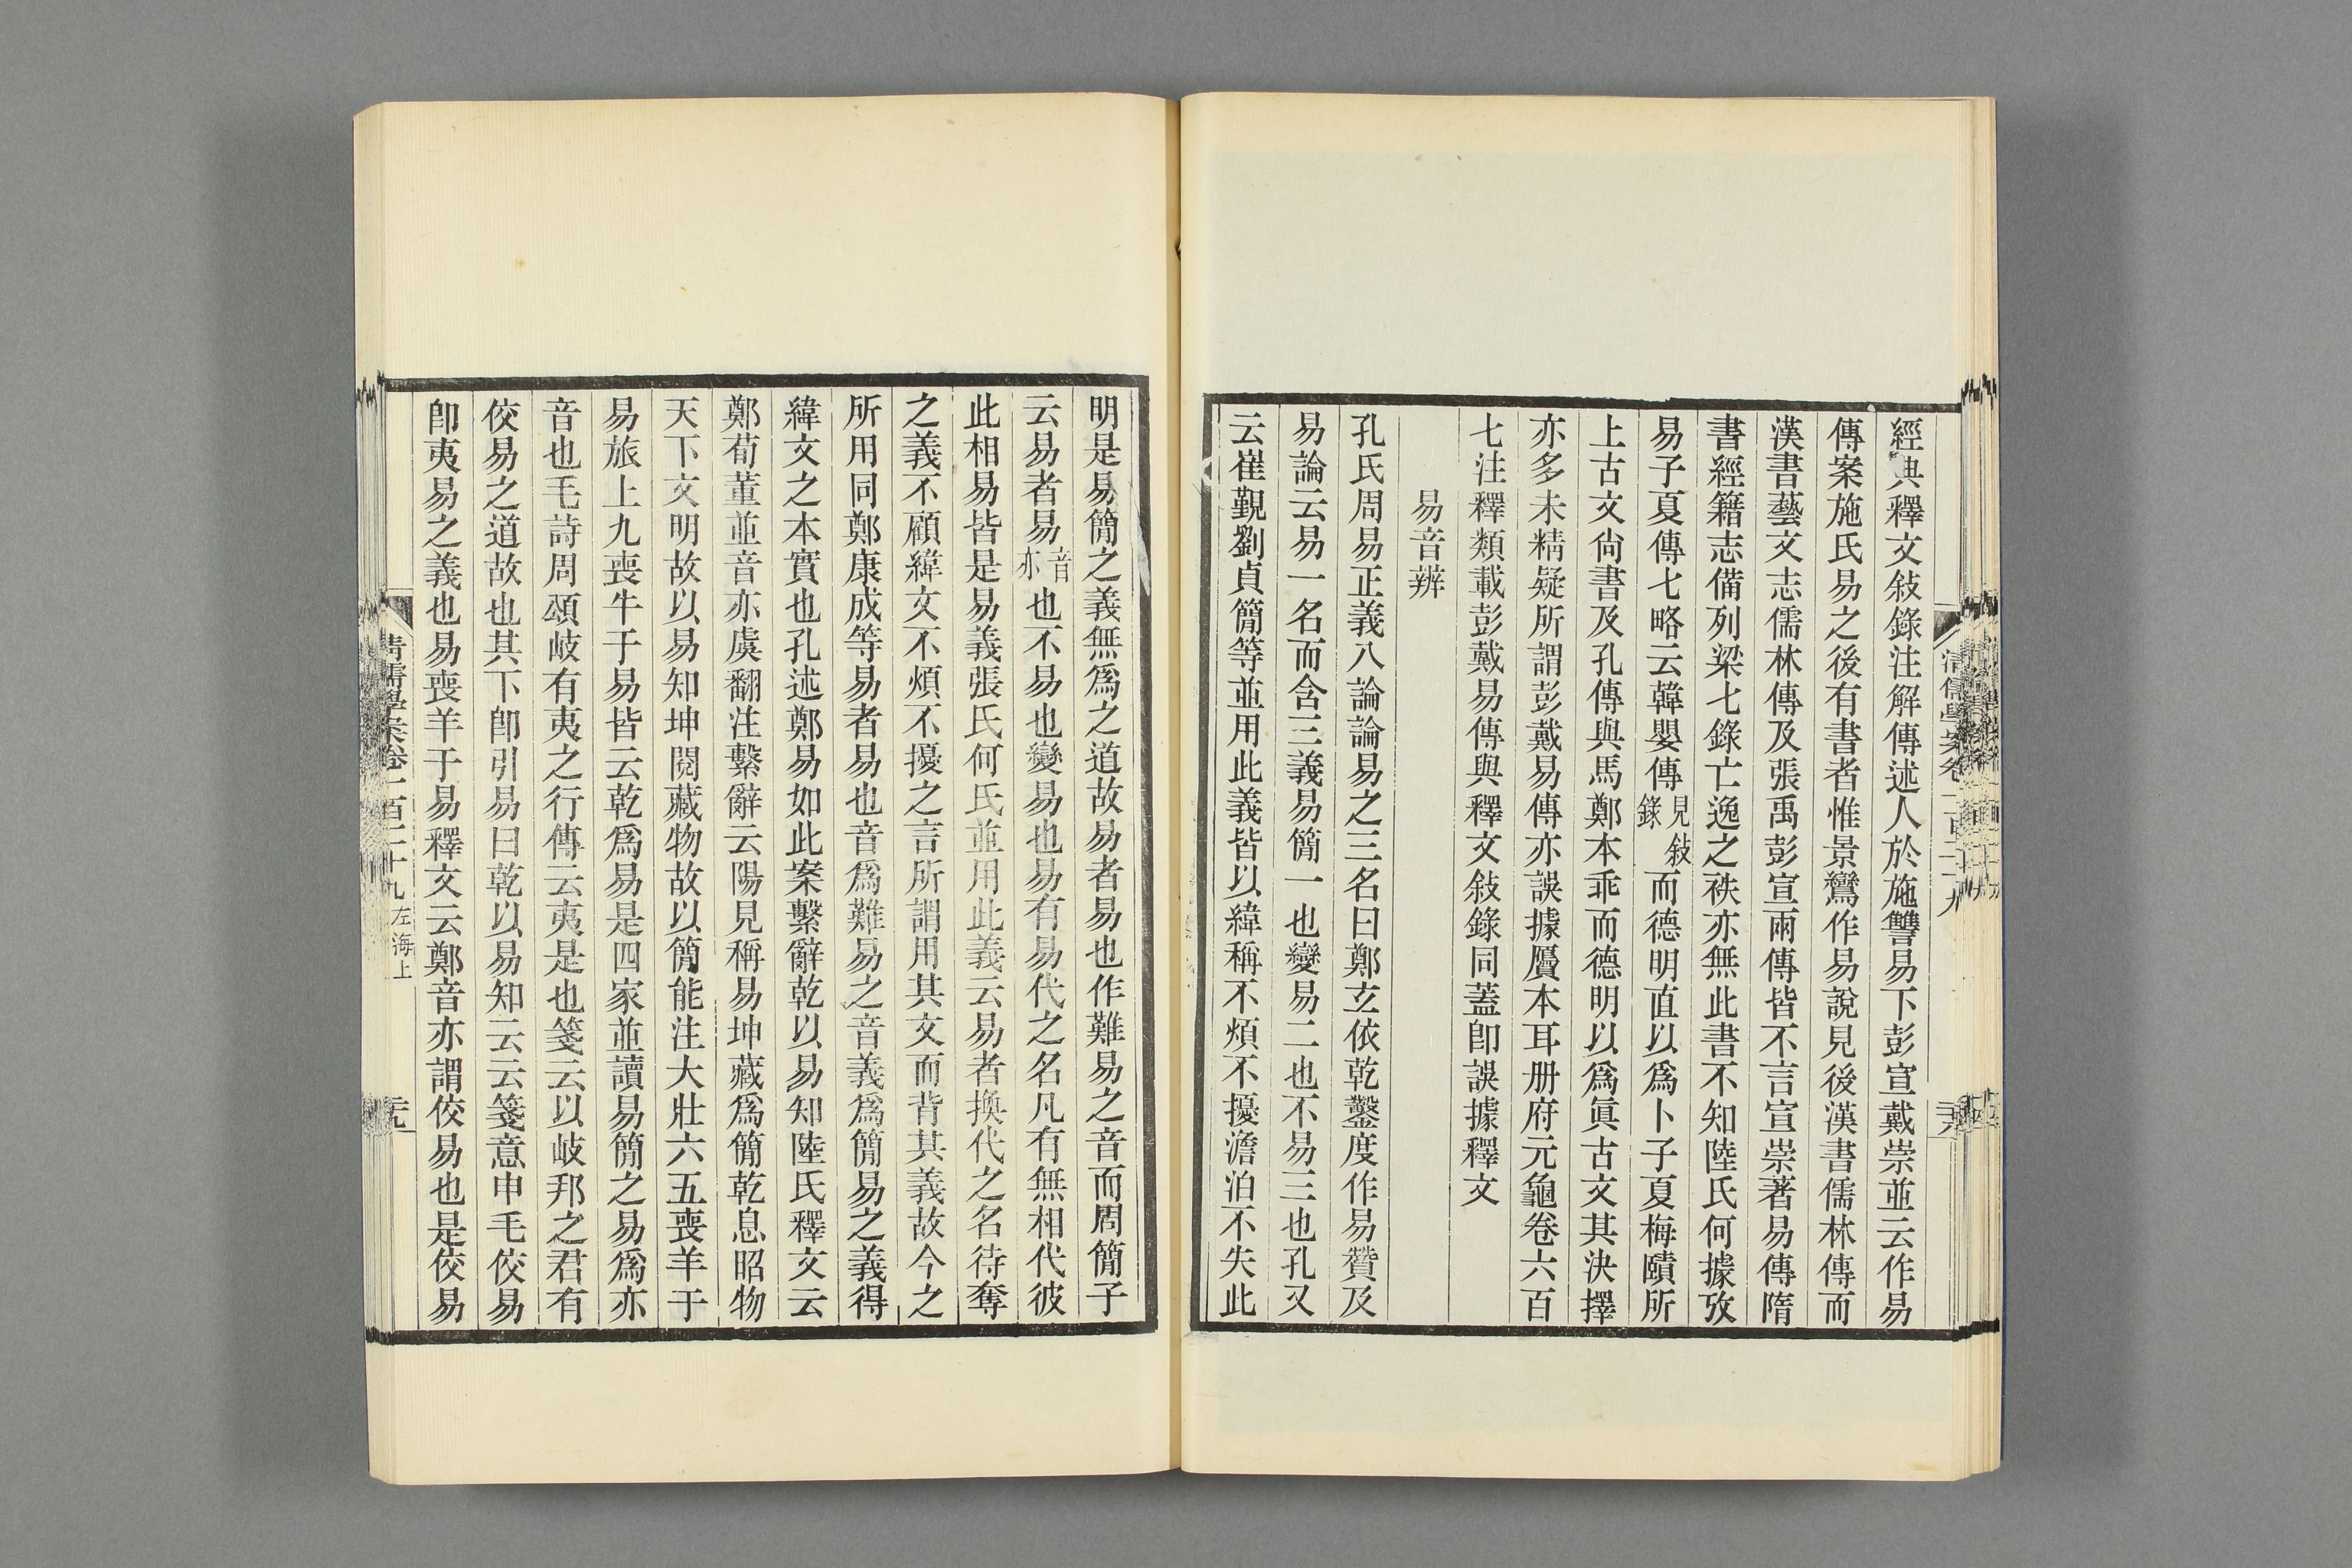 經典釋文敍錄注解傳述人於施讐易下彭宣戴崇並云作易
傳案施氏易之後有書者惟景鸞作易說見後漢書儒林傳而
漢書藝文志儒林傳及張禹彭宣兩傳皆不言宣崇著易傳隋
書經籍志備列梁七錄亡逸之袟亦無此書不知陸氏何據攷
易子夏傳七略云韓嬰傳見敍錄而德明直以爲卜子夏梅賾所
上古文尙書及孔傳與馬鄭本乖而德明以爲眞古文其決擇
亦多未精疑所謂彭戴易傳亦誤據贋本耳册府元龜卷六百
七注釋類載彭戴易傳與釋文敍錄同蓋卽誤據釋文
易音辨
孔氏周易正義八論論易之三名曰鄭玄依乾鑿度作易贊及
易論云易一名而含三義易簡一也變易二也不易三也孔又
云崔覲劉貞簡等並用此義皆以緯稱不煩不擾澹泊不失此
明是易簡之義無爲之道故易者易也作難易之音而周簡子
云易者易音亦也不易也變易也易有易代之名凡有無相代彼
此相易皆是易義張氏何氏並用此義云易者換代之名待奪
之義不顧緯文不煩不擾之言所謂用其文而背其義故今之
所用同鄭康成等易者易也音爲難易之音義爲簡易之義得
緯文之本實也孔述鄭易如此案繫辭乾以易知陸氏釋文云
鄭荀董並音亦虞翻注繫辭云陽見稱易坤藏爲簡乾息昭物
天下文明故以易知坤閱藏物故以簡能注大壯六五喪羊于
易旅上九喪牛于易皆云乾爲易是四家並讀易簡之易爲亦
音也毛詩周頌岐有夷之行傳云夷是也箋云以岐邦之君有
佼易之道故也其下卽引易曰乾以易知云云箋意申毛佼易
卽夷易之義也易喪羊于易釋文云鄭音亦謂佼易也是佼易
清儒學案卷一百二十九 左海上